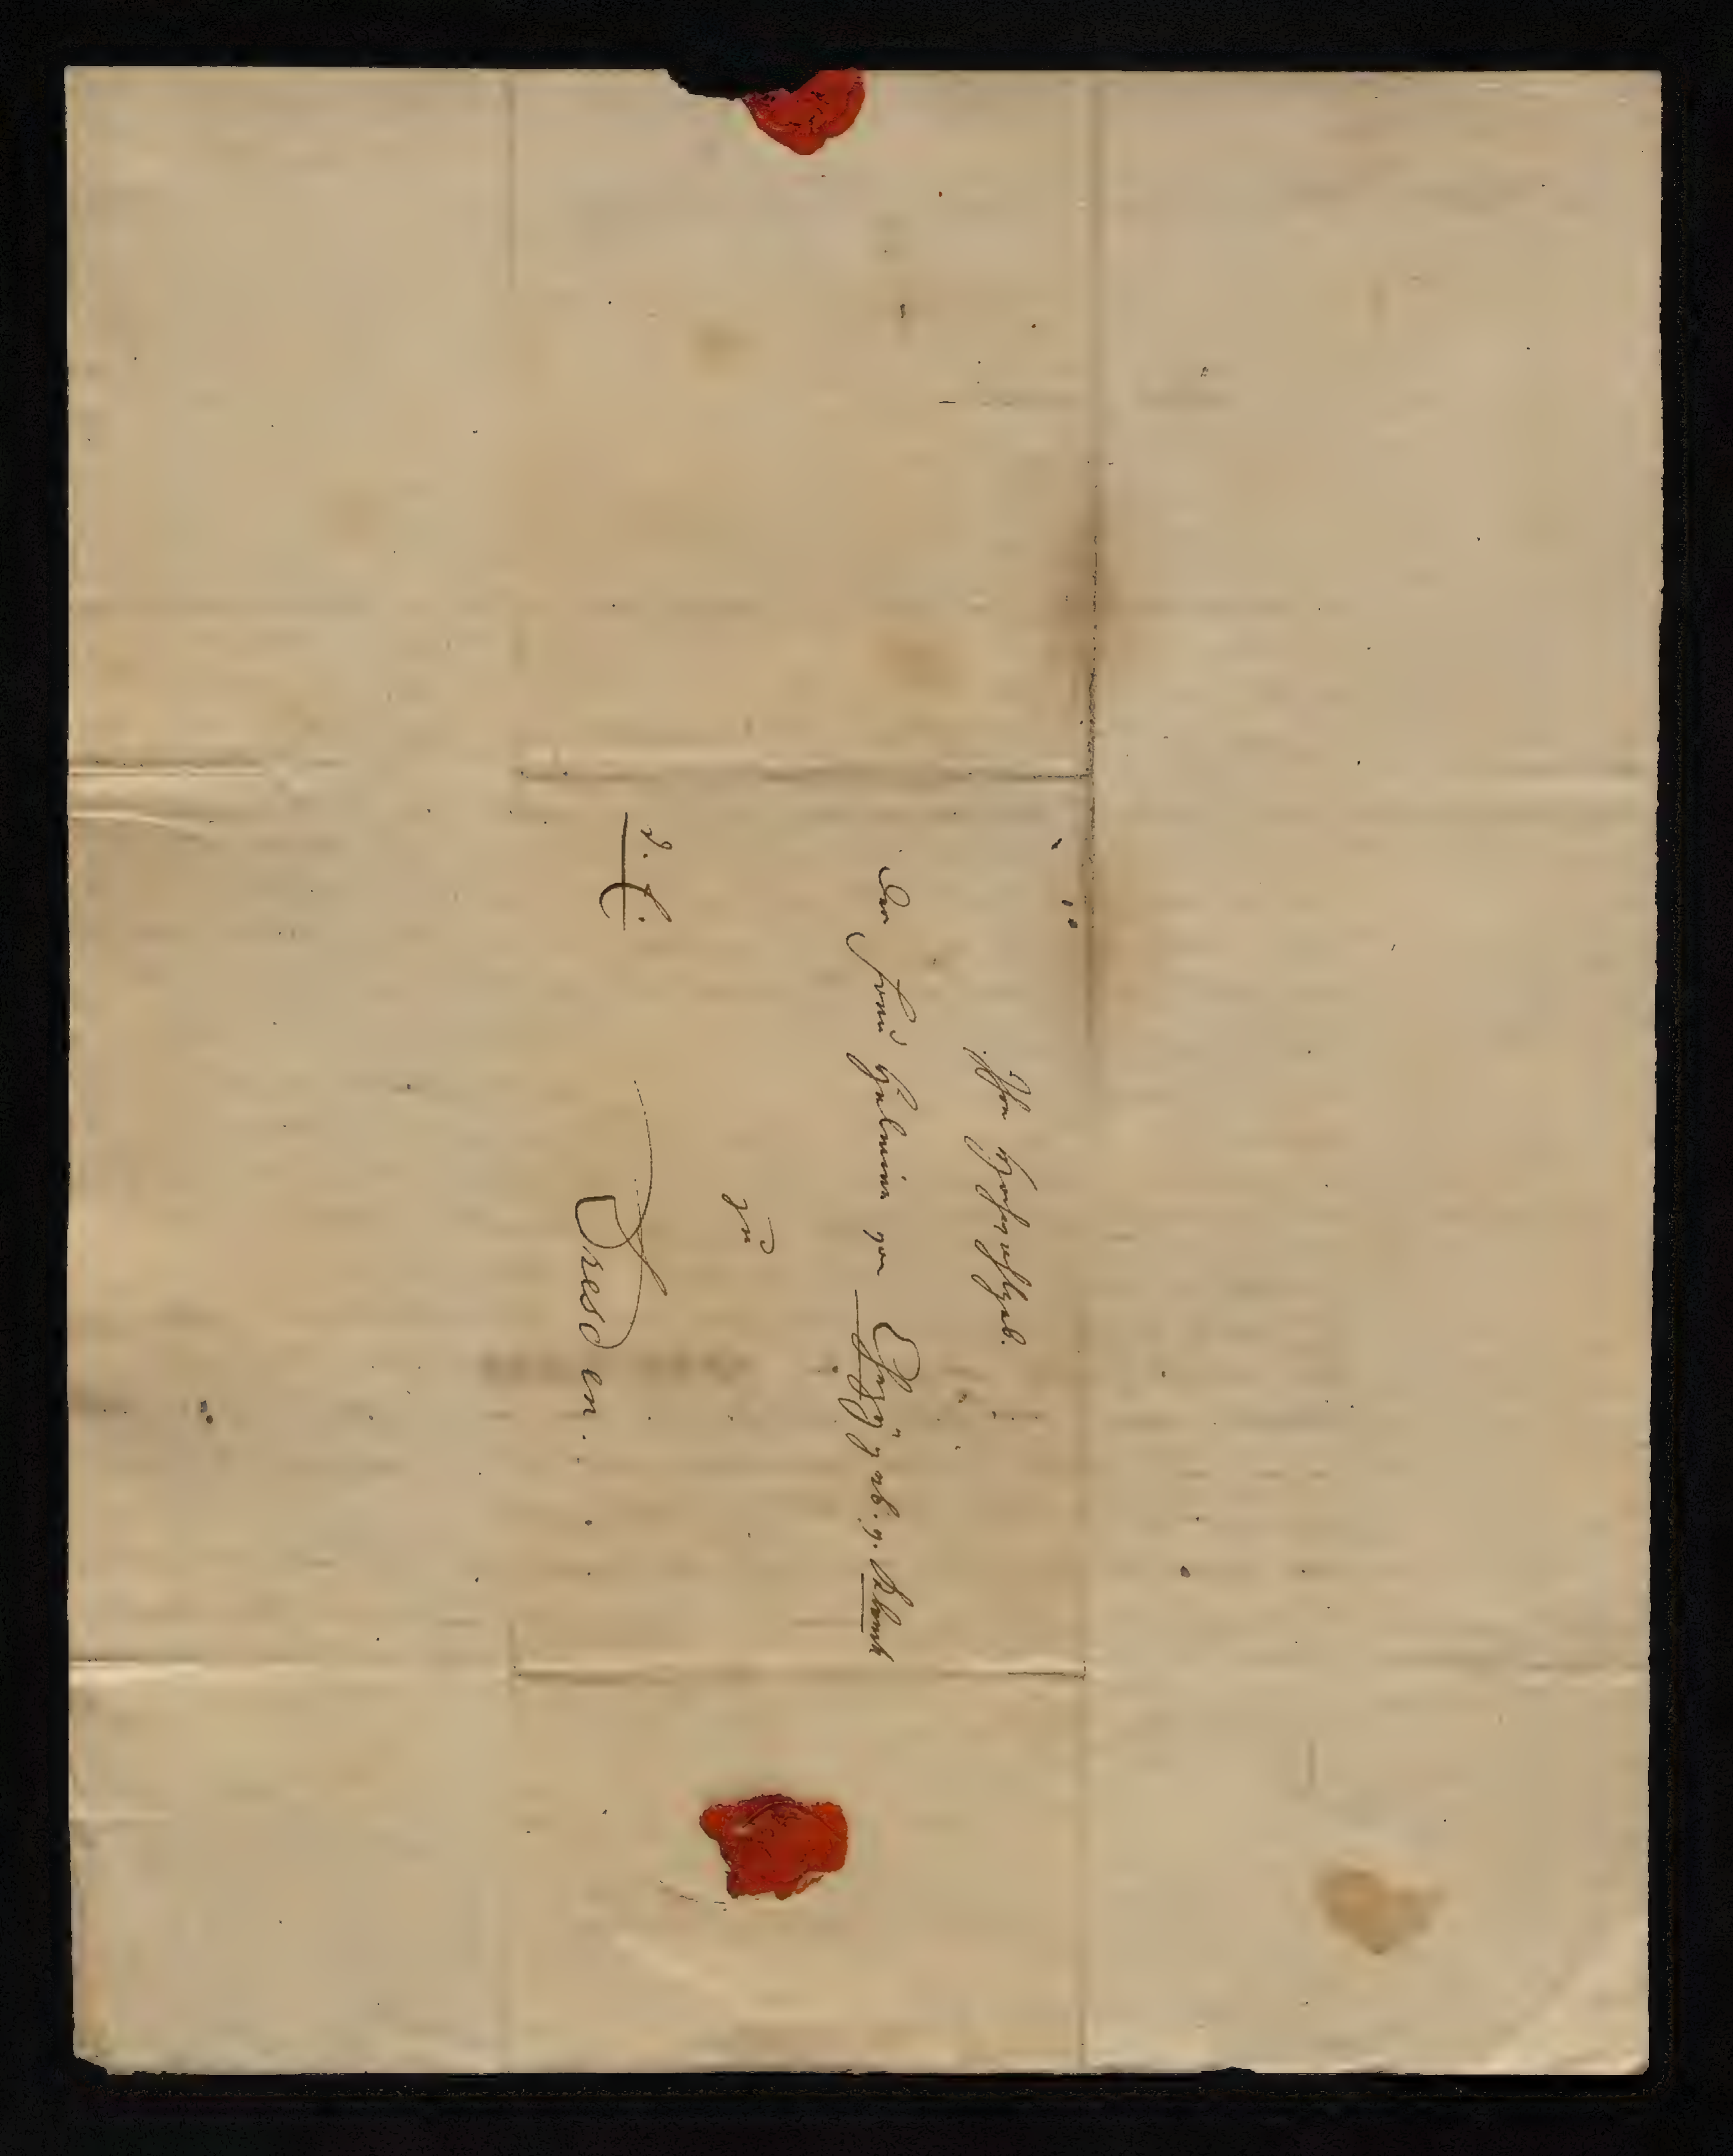 Ihro Hochwohlgeb.
der Frau Helmina von Chezÿ geb. v. Klenck
zu
Dresden.
d. E.